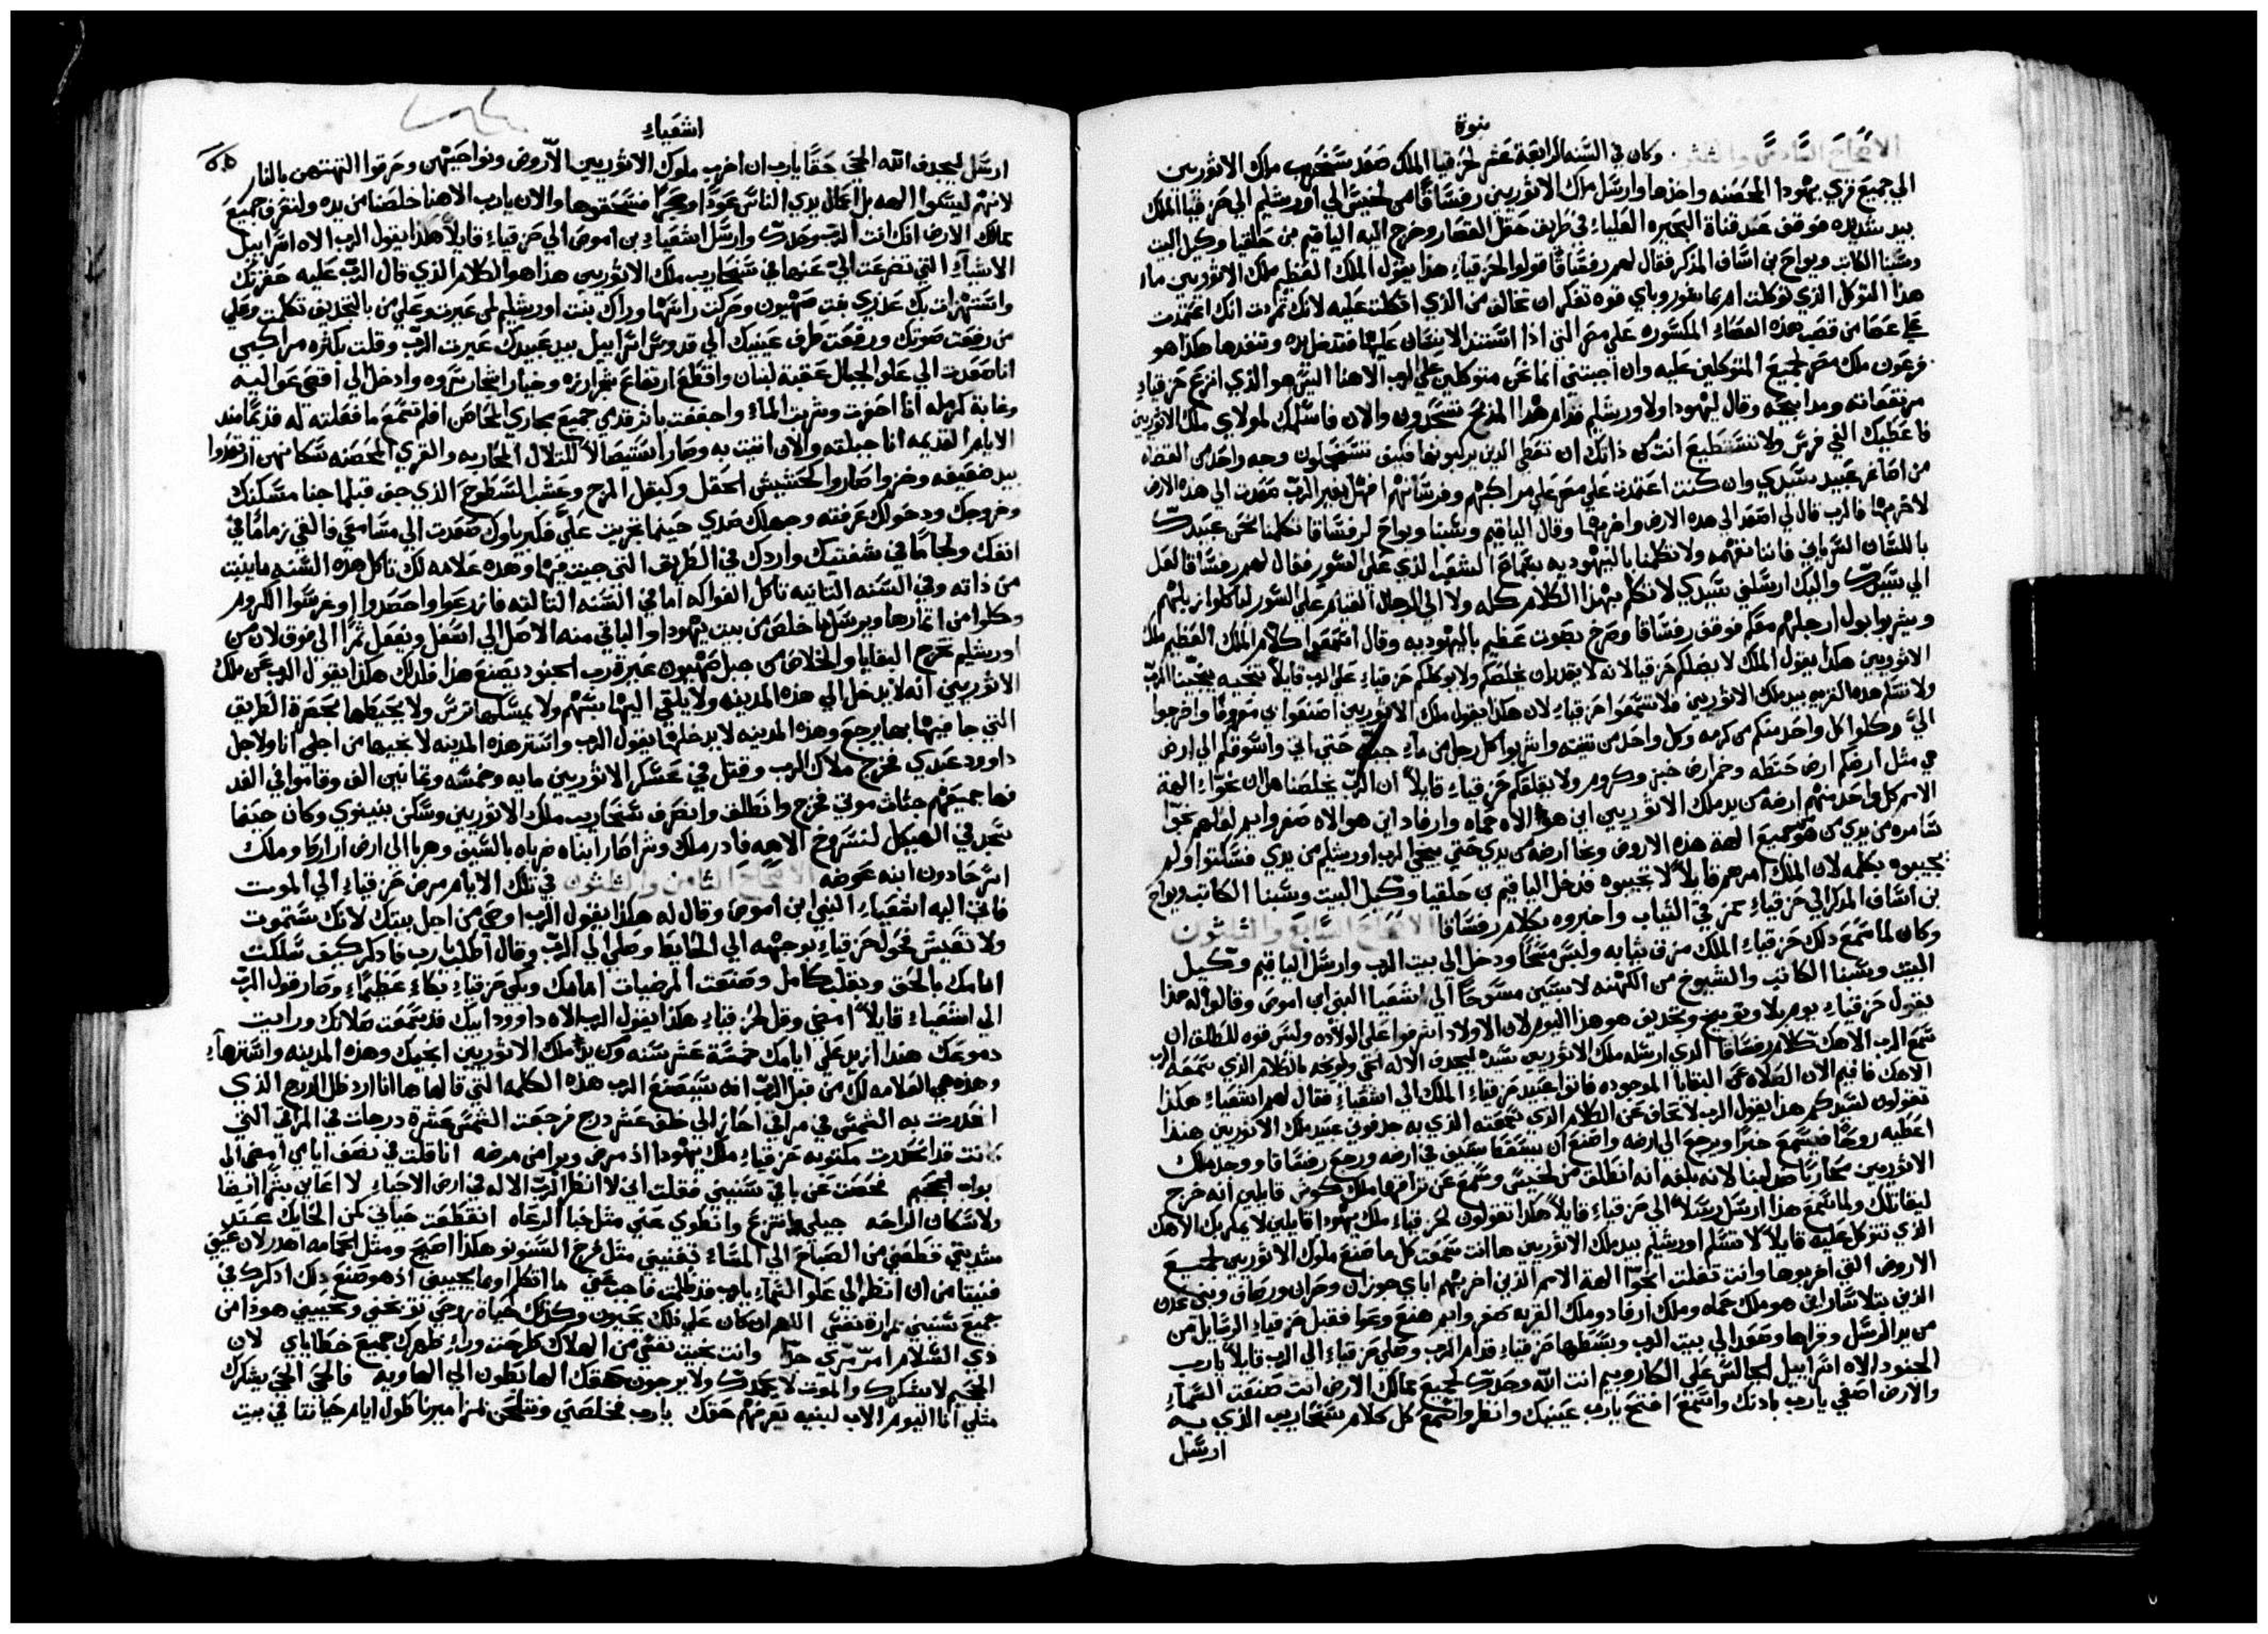 نبوة
الاصحاح السادس والثلثون وكان في السنه الرابعة عشر لحزقيا الملك صعد سنحاريب ملك الاثوريين
الي جميع قري يهودا المحصنه واخذها وارسل ملك الاثوريين رفساقا من لخيس الي اورشليم الي حزقيا الملك
بيد شديده فوقف عند قناة البحيره العلياء في طريق حقل القصار وخرج اليه الياقيم بن حلقيا وكيل البيت
وسبنا الكاتب ويواح بن اساف المذكر فقال لهم رفساقا قولوا لحزقياء هذا يقول الملك العظيم ملك الاثوريين ما
هذا التوكل الذي توكلت وباي قوه تفكر ان تخالف من الذي اتكلت عليه لانك تمردت انك اعتمدت
علي عصا من قصب هذه العصاء المكسوره علي مصر التي اذا استند الانسان عليها فتدخل يده وتنفذها هكذا هو
فرعون ملك مصر لجميع المتوكلين عليه وان اجبتني انما نحن متوكلين علي الرب الاهنا اليس هو الذي انزع حزقياء
مرتفعاته ومدابحه وقال ليهودا ولاورشليم قدام هذا المذبح تسجدون والان فاسلمك لمولاي ملك الاثوريين
فاعطيك الفي فرس ولا تستطيع انت من ذاتك ان تعطي الذين يركبونها فكيف تستعجلون وجه واحد من القضاه
من اصاغر عبيد سيدي وان كنت اعتمدت علي مصر علي مراكبهم وفرسانهم افهل بغير الرب صعدت الي هذه الارض
لاخربها فالرب قال لي اصعد الي هذه الارض واخربها وقال الياقيم وسبنا ويواح لرفساقا تكلمنا نحن عبيدك
باللسان السرياني فاننا نفهمه ولا تكلمنا باليهوديه بسماع الشعب الذي علي السور فقال لهم رفساقا العل
الي سيدك واليك ارسلني سيدي لاتكلم بهذا الكلام كله ولا الي الرجال القيام علي السور لياكلوا زبلهم
ويشربوا بول ارجلهم معكم فوقف رفساقا وصرخ بصوت عظيم باليهوديه وقال استمعوا كلام الملك العظيم ملك
الاثوريين هكذا يقول الملك لا يضلكم حزقيا لانه لا يقدر ان يخلصكم ولا يوكلكم حزقياء علي الرب قايلا ينجيه ينجينا الرب
ولا تسلم هذه القريه بيد ملك الاثوريين فلا تسمعوا حزقياء لان هكذا يقول ملك الاثوريين اصنعوا بي معروفا واخرجوا
الي وكلوا كل واحد منكم من كرمه وكل واحد من تينته واشربوا كل رجل من ماء جبه حتي اتي واسوقكم الي ارض
هي مثل ارضكم ارض حنطه وخمر ارض خبز وكروم ولا يقلقكم حزقياء قايلا ان الرب يخلصنا هل ان نجوا الهة
الامم كل واحد منهم ارضه من يد ملك الاثوريين اين هو الاه حماه وارفاد اين هو الاه صفروايم لعلهم نجوا
سامره من يدي من هو من جميع الهة هذه الاروض ونجا ارضه من يدي حتي ينجي الرب اورشليم من يدي فسكتوا ولم
يجيبوه بكلمه لان الملك امرهم قايلا لا تجيبوه فدخل الياقيم بن حلقيا وكيل البيت وسبنا الكاتب ويواح
بن اساف المذكر الي حزقياء مخرقي الثياب واخبروه بكلام رفساقا الاصحاح السابع والثلثون
وكان لما سمع ذلك حزقياء الملك مزق ثيابه ولبس مسحا ودخل الي بيت الرب وارسل الياقيم وكيل
البيت وسبنا الكاتب والشيوخ من الكهنه لابسين مسوحا الي اشعيا النبي ابن اموص وقالوا له هذا
يقول حزقياء يوم بلا وتوبيخ وتجديف هو هذا اليوم لان الاولاد اشرفوا علي الولاده وليس قوه للطلق ان
سمع الرب الاهك كلام رفساقا الذي ارسله ملك الاثوريين سيده ليجدف الاله الحي ويلومه بالكلام الذي سمعه الرب
الاهك فاقيم الان الصلاه عن البقايا الموجوده فاتوا عبيد حزقياء الملك الي اشعياء فقال لهم اشعياء هكذا
تقولون لسيدكم هذا يقول الرب لا تخاف عن الكلام الذي سمعته الذي به جدفوني عبيد ملك الاثوريين هنذا
اعطيه روحا فيسمع خبرا ويرجع الي ارضه واصنع ان يسقط بسيف في ارضه ورجع رفساقا ووجد ملك
الاثوريين محاربا لبنا لانه بلغه انه انطلق من لخيس وسمع عن تراقها ملك كوش قايلين انه خرج
ليقاتلك ولما سمع هذا ارسل رسلا الي حزقياء قايلا هكذا تقولون لحزقياء ملك يهودا قايلين لا يمكر بك الاهك
الذي تتوكل عليه قايلا لا تسلم اورشليم بيد ملك الاثوريين ها انت سمعت كل ما صنع ملوك الاثوريين لجميع
الاروض التي اخربوها وانت تفلت انجوا الهة الامم الذين اخربتهم اباي جوزان وحران ورصاف وبني عدن
الذين بتلاشار اين هو ملك حماه وملك ارفاد وملك القريه صفروايم هنع وعوا فقبل حزقياء الرسايل من
من يد الرسل وقراها وصعد الي بيت الرب وبسطها حزقياء قدام الرب وصلي حزقياء الي الرب قايلا يارب
الجنود الاه اسراييل الجالس علي الكاروبيم انت الله وحدك لجميع ممالك الارض انت صنعت السماء
والارض اصغي يارب بادنك واستمع افتح يارب عينيك وانظر واسمع كل كلام سنحاريب الذي به
ارسل
اشعياء
ارسل ليجدف الله الحي حقا يارب ان اخرب ملوك الاثوريين الاروض ونواحيهن وحرقوا الهتهن بالنار
لانهم ليسوا الهه بل اعمال يدي الناس عودا وحجرا فسحقوها والان يارب الاهنا خلصنا من يده ولتعرف جميع
ممالك الارض انك انت الرب وحدك وارسل اشعياء بن اموص الي حزقياء قايلا هكذا يقول الرب الاه اسراييل
الاشياء التي تضرعت الي عنها في سنحاريب ملك الاثوريين هذا هو الكلام الذي قال الرب عليه حقرتك
واستهزات بك عذري بنت صهيون وحركت راسها وراك بنت اورشليم لمن عيرت وعلي من بالتجديف تكلمت وعلي
من رفعت صوتك ورفعت طرف عينيك الي قدوس اسراييل بيد عبيدك عيرت الرب وقلت بكثره مراكبي
انا صعدت الي علو الجبال عقبة لبنان واقطع ارتفاع شرارزه وخيار اشجار سروه وادخل الي اقصي عواليه
وغابة كرمله انا احفرت وشربت الماء واجففت باثر قدمي جميع مجاري المخاض افلم تسمع ما فعلته له قديما منذ
الايام القديمه انا جبلته والان اتيت به وصار استيصالا للتلال المحاربه والقري المحصنه سكانهن ارتعدوا
بيد ضعيفه وخزوا صاروا كحشيش الحقل وكبقل المرج وعشب السطوح الذي جف قبلما جنا مسكنك
وخروجك ودخولك عرفته وجهلك ضدي حينما تحزبت علي فكبرياوك صعدت الي مسامعي فالقي زماما في
انفك ولجاما في شفتيك واردك في الطريق التي جيت فيها وهذه علامه لك تاكل هذه السنه ما ينبت
من ذاته وفي السنه الثانيه تاكل الفواكه اما في السنه الثالثه فازدعوا واحصدوا وغرسوا الكروم
وكلوا من اثمارها ويرسل ما خلص من بيت يهودا والباقي منه الاصل الي اسفل ويعمل ثمرا الي فوق لان من
اورشليم تخرج البقايا والخلاص من جبل صهيون غيرة رب الجنود تصنع هذا فلذلك هكذا يقول الرب عن ملك
الاثوريين انه لا يدخل الي هذه المدينه ولا يلقي اليها بسهم ولا يمسكها ترس ولا يحيطها بمحصرة الطريق
التي جا فيها بها يرجع وهذه المدينه لا يدخلها يقول الرب واستر هذه المدينه لانجيها من اجلي انا ولاجل
داوود عبدي فخرج ملاك الرب وقتل في عسكر الاثوريين مايه وخمسه وثمانين الف وقاموا في الغد
فها جميعهم جثات موتي فخرج وانطلق وانصرف سنحاريب ملك الاثوريين وسكن بنينوي وكان حينما
سجد في الهيكل لنسروخ الاهه فادرملك وشراصار ابناه ضرباه بالسيف وهربا الي ارض اراراط وملك
اسرحادون ابنه عوضه الاصحاح الثامن والثلثون في تلك الايام مرض حزقياء الي الموت
فاتي اليه اشعياء النبي ابن اموص وقال له هكذا يقول الرب اوصي من اجل بيتك لانك ستموت
ولا تعيش فحول حزقياء بوجهه الي الحايط وصلي الي الرب وقال اطلب يارب فادكر كيف سلكت
امامك بالحق وبقلب كامل وصنعت المرضيات امامك وبكي حزقياء بكاء عظيما وصار قول الرب
الي اشعياء قايلا امضي وقل لحزقياء هكذا يقول الرب الاه داوود ابيك قد سمعت صلاتك ورايت
دموعك هنذا ازيد علي ايامك خمسة عشر سنه ومن يد ملك الاثوريين انجيك وهذه المدينه واسترها
وهذه هي العلامه لك من قبل الرب انه سيصنع الرب هذه الكلمه التي قالها ها انا ارد ظل الدرج الذي
انحدرت به الشمس في مراقي احاز الي خلف عشر درج فرجعت الشمس عشرة درجات في المراقي التي
كانت قد انحدرت مكتوبه حزقياء ملك يهودا اذ مرض وبرا من مرضه انا قلت في نصف ايامي امضي الي
ابواب الجحيم فحصت عن باقي سنيني فقلت اني لا انظر الرب الاله في ارض الاحياء لا اعاين بشرا ايضا
ولا سكان الراحه جيلي انتزع وانطوي عني مثل خبا الرعاه انقطعت حياتي كمن الحايك عند
سديتي قطعني من الصباح الي المساء تفنيني مثل فرخ السنونو هكذا اصيح ومثل الحمامه اهدر لان عيني
فنيتا من ان انظر الي علو السماء يارب قد ظلمت فاجب عني ما اتكلم او بما يجيبني اذ هو صنع ذلك اذكرك في
جميع سنيني بمرارة نفسي اللهم ان كان علي ذلك يحيون وكذلك حياة روحي توبخني وتحييني هوذا من
ذي السلام امر مري جدا وانت نجيت نفسي من الهلاك طرحت وراء ظهرك جميع خطاياي لان
الجحيم لا تشكرك والموت لا يحمدك ولا يرجون حقك الهابطون الي الهاويه فالحي الحي يشكرك
مثلي انا اليوم الاب لبنيه يعرفهم حقك يارب مخلصني ونسبح مزاميرنا طول ايام حياتنا في بيت